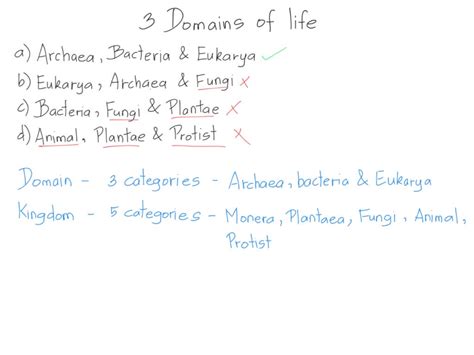 3 Domains of life
a) Archaea, Bacteria & Eukarya ✓
b) Eukarya, Archaea & Fungi ×
c) Bacteria, Fungi & Plantae ×
d) Animal, Plantae & Protist ×
Domain - 3 categories - Archaea, bacteria & Eukarya
Kingdom - 5 categories - Monera, Plantaea, Fungi, Animal,
Protist